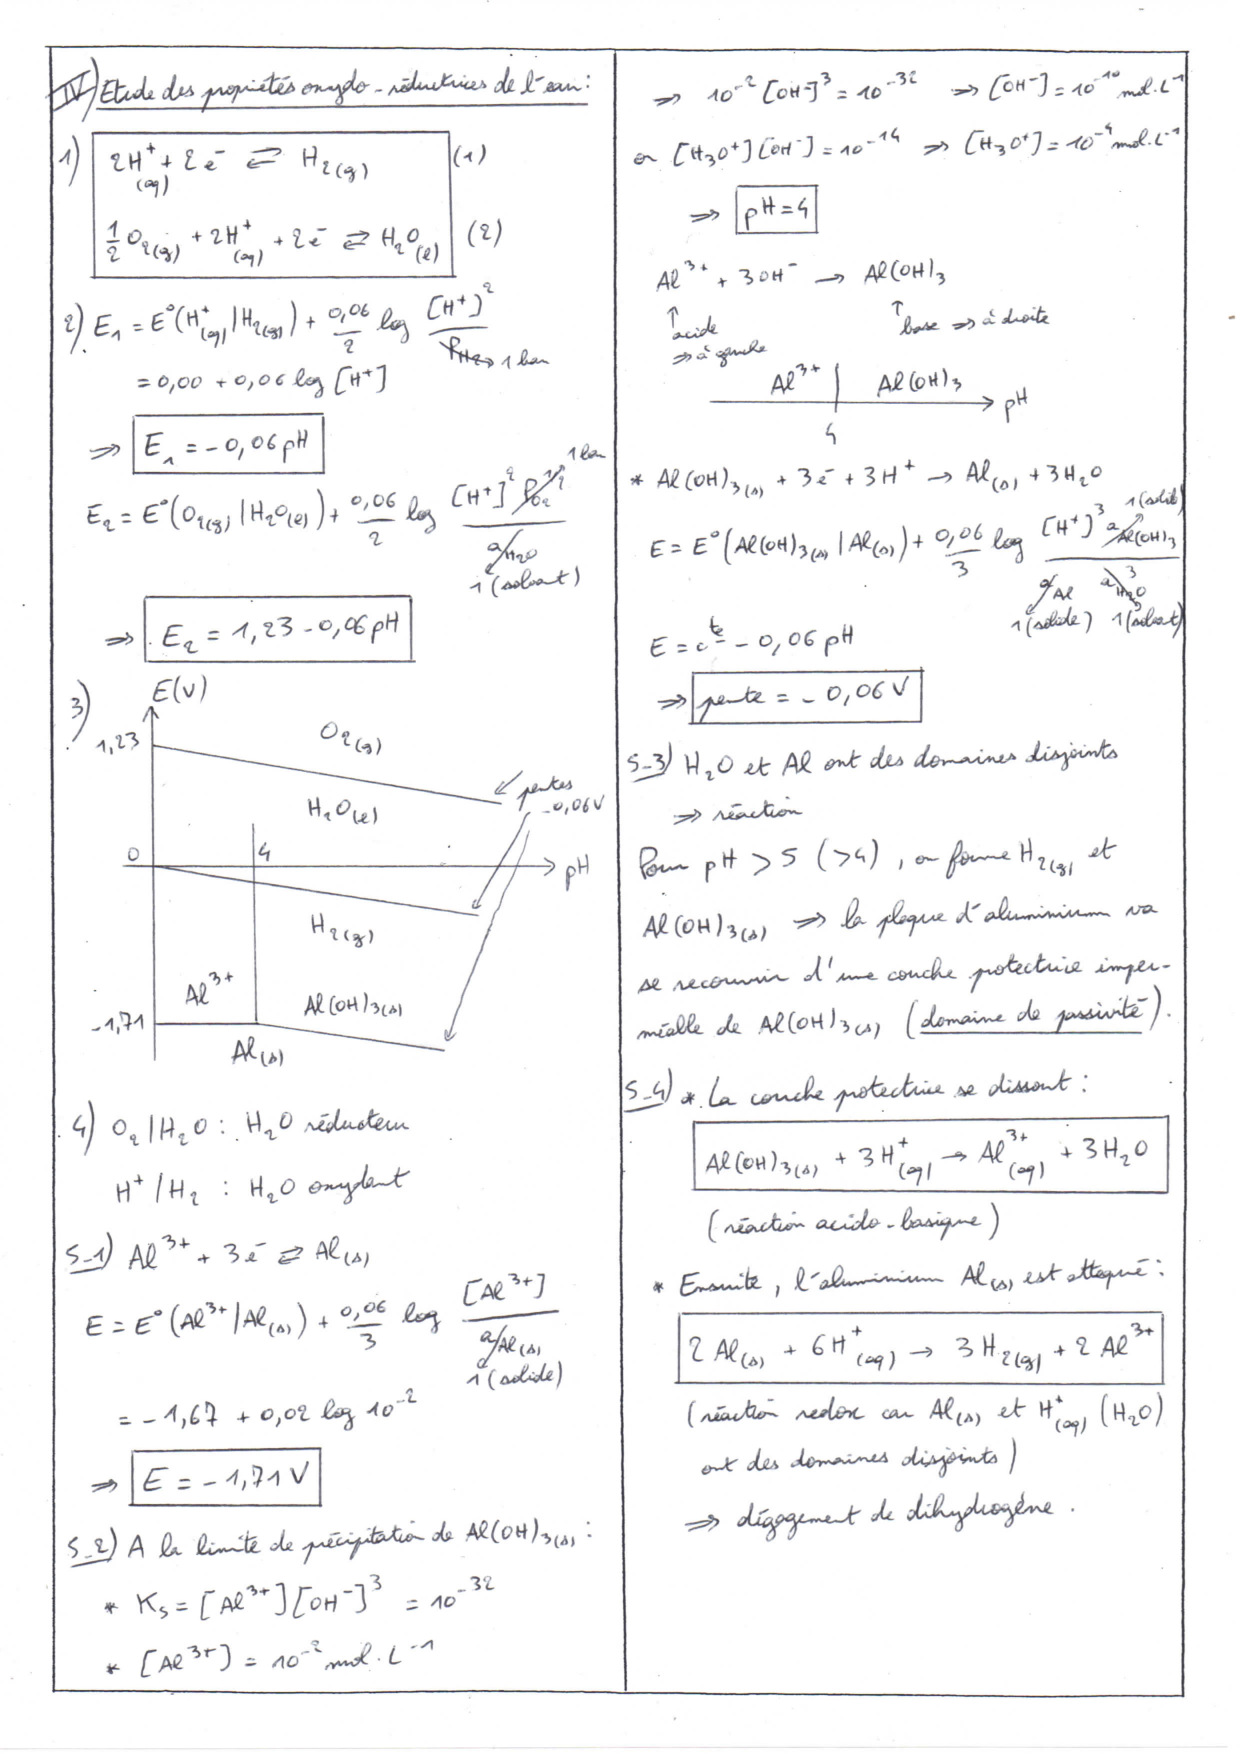 IV) Etude des propriétés oxydo-réductrices de l'eau :
1) 2H⁺(aq) + 2é ⇄ H₂(g) (1)
½ O₂(g) + 2H⁺(aq) + 2é ⇄ H₂O(l) (2)
2) E₁ = E°(H⁺(aq) | H₂(g)) + 0,06/2 log [H⁺]²/P_H₂ → 1 bar
= 0,00 + 0,06 log [H⁺]
⇒ E₁ = -0,06 pH
E₂ = E°(O₂(g) | H₂O(l)) + 0,06/2 log [H⁺]² P_O₂^½ / a_H₂O
1 bar
1 (solvant)
⇒ E₂ = 1,23 - 0,06 pH
3) E(V)
1,23
O₂(g)
pentes
-0,06 V
H₂O(l)
0
4
pH
H₂(g)
Al³⁺
Al(OH)₃(s)
-1,71
Al(s)
4) O₂ | H₂O : H₂O réducteur
H⁺ / H₂ : H₂O oxydant
5-1) Al³⁺ + 3é ⇄ Al(s)
E = E°(Al³⁺ | Al(s)) + 0,06/3 log [Al³⁺]/a_Al(s)
1 (solide)
= -1,67 + 0,02 log 10⁻²
⇒ E = -1,71 V
5-2) A la limite de précipitation de Al(OH)₃(s) :
* Ks = [Al³⁺][OH⁻]³ = 10⁻³²
* [Al³⁺] = 10⁻² mol.L⁻¹
⇒ 10⁻² [OH⁻]³ = 10⁻³² ⇒ [OH⁻] = 10⁻¹⁰ mol.L⁻¹
or [H₃O⁺][OH⁻] = 10⁻¹⁴ ⇒ [H₃O⁺] = 10⁻⁴ mol.L⁻¹
⇒ pH = 4
Al³⁺ + 3OH⁻ → Al(OH)₃
↑ acide ⇒ à gauche
↑ base ⇒ à droite
Al³⁺ | Al(OH)₃ → pH
4
* Al(OH)₃(s) + 3é + 3H⁺ → Al(s) + 3H₂O
1 (solide)
E = E°(Al(OH)₃(s) | Al(s)) + 0,06/3 log [H⁺]³ a_Al(OH)₃ / a_Al a_H₂O³
1 (solide) 1 (solvant)
E = cᵗᵉ - 0,06 pH
⇒ pente = -0,06 V
5-3) H₂O et Al ont des domaines disjoints
⇒ réaction
Pour pH > 5 (>4), on forme H₂(g) et
Al(OH)₃(s) ⇒ la plaque d'aluminium va
se recouvrir d'une couche protectrice imper-
méable de Al(OH)₃(s) (domaine de passivité).
5-4) * La couche protectrice se dissout :
Al(OH)₃(s) + 3H⁺(aq) → Al³⁺(aq) + 3H₂O
(réaction acido-basique)
* Ensuite, l'aluminium Al(s) est attaqué :
2Al(s) + 6H⁺(aq) → 3H₂(g) + 2Al³⁺
(réaction redox car Al(s) et H⁺(aq) (H₂O)
ont des domaines disjoints)
⇒ dégagement de dihydrogène.